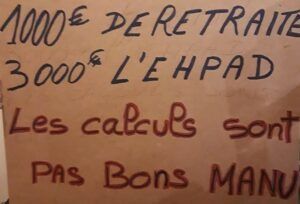 1000€ DE RETRAITE
3000€ L'EHPAD
Les calculs sont
PAS BONS MANU